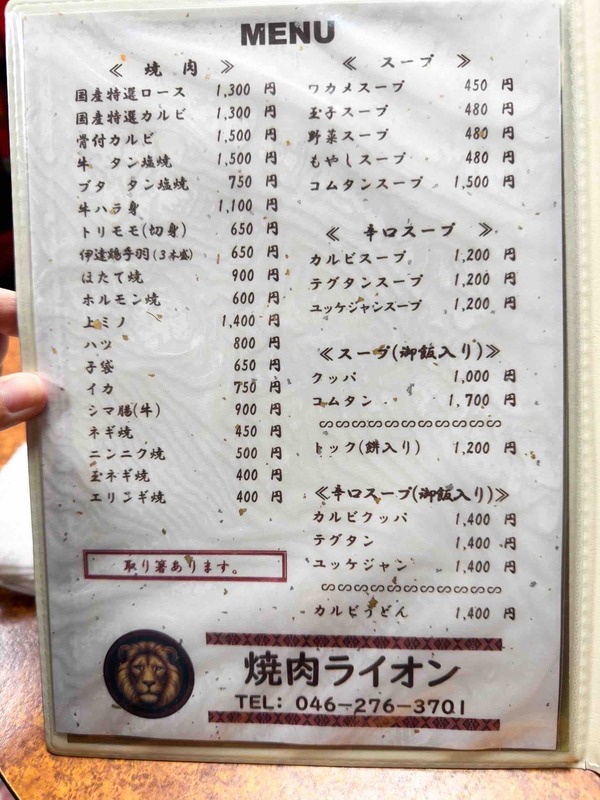 MENU
≪ 焼 肉 ≫
国産特選ロース 1,300 円
国産特選カルビ 1,300 円
骨付カルビ 1,500 円
牛 タン塩焼 1,500 円
ブタ タン塩焼 750 円
牛ハラ身 1,100 円
トリモモ(切身) 650 円
伊達鶏手羽(3本盛) 650 円
ほたて焼 900 円
ホルモン焼 600 円
上ミノ 1,400 円
ハツ 800 円
子袋 650 円
イカ 750 円
シマ腸(牛) 900 円
ネギ焼 450 円
ニンニク焼 500 円
玉ネギ焼 400 円
エリンギ焼 400 円
取り箸あります。
≪ スープ ≫
ワカメスープ 450 円
玉子スープ 480 円
野菜スープ 480 円
もやしスープ 480 円
コムタンスープ 1,500 円
≪ 辛口スープ ≫
カルビスープ 1,200 円
テグタンスープ 1,200 円
ユッケジャンスープ 1,200 円
≪スープ(御飯入り)≫
クッパ 1,000 円
コムタン 1,700 円
トック(餅入り) 1,200 円
≪辛口スープ(御飯入り)≫
カルビクッパ 1,400 円
テグタン 1,400 円
ユッケジャン 1,400 円
カルビうどん 1,400 円
焼肉ライオン
TEL: 046-276-3701